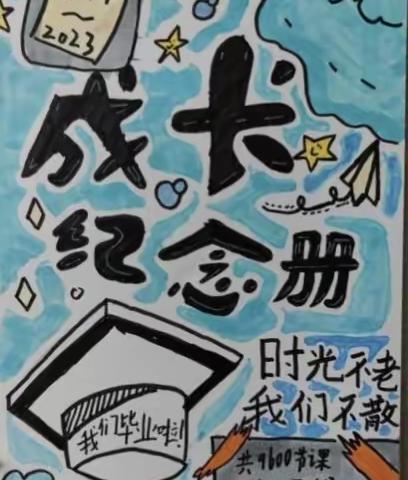 ~
2023
成长
纪念册
时光不老
我们不散
我们毕业啦!
共9600节课